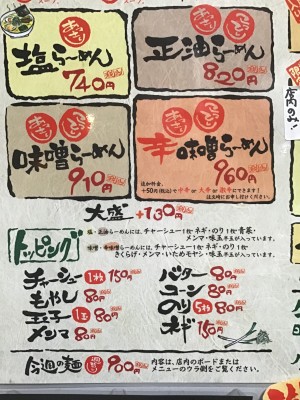 あっさり
塩らーめん
740円
こってり
あっさり
正油らーめん
820円
こってり
あっさり
味噌らーめん
910円
こってり
辛味噌らーめん
960円
追加料金、
+50円(税込)で中辛or大辛or激辛にできます!
注文時にお申し付けください。
店内のみ!
大盛 +130円
塩・正油らーめんには、チャーシュー1枚・ネギ・のり1枚・青菜・
メンマ・味玉半玉が入っています。
味噌・辛味噌らーめんには、チャーシュー1枚・ネギ・のり1枚
きくらげ・メンマ・いためモヤシ・味玉半玉が入っています。
トッピング
チャーシュー 1枚 150円
バター 80円
もやし 80円
コーン 80円
玉子 1コ 80円
のり 5枚 80円
メンマ 80円
ネギ 150円
今週の麺 900円
内容は、店内のボードまたは
メニューのウラ側をご覧ください。